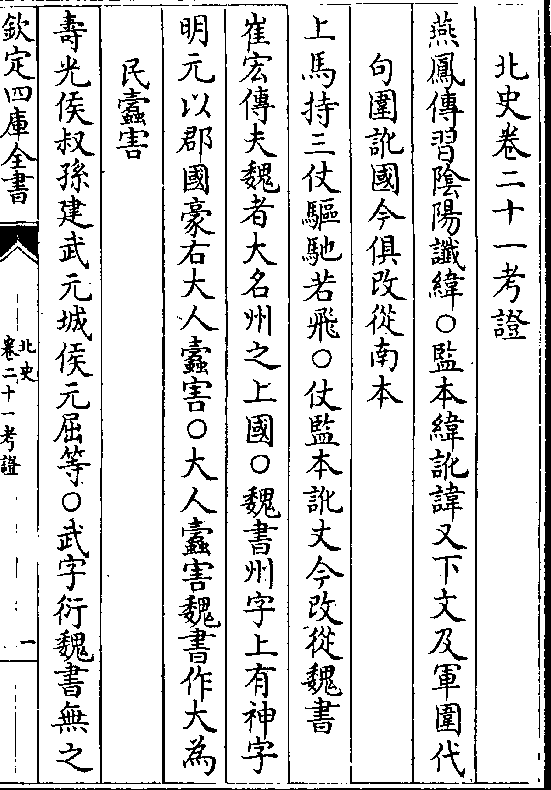 北史卷二十一考證
燕鳳傳習陰陽讖緯○監本緯訛諱又下文及軍圍代
句圍訛國今俱改從南本
上馬持三仗驅馳若飛○仗監本訛丈今改從魏書
崔宏傳夫魏者大名州之上國○魏書州字上有神字
明元以郡國豪右大人蠧害○大人蠧害魏書作大為
民蠧害
壽光侯叔孫建武元城侯元屈等○武字衍魏書無之
欽定四庫全書
北史
卷二十一考證
一